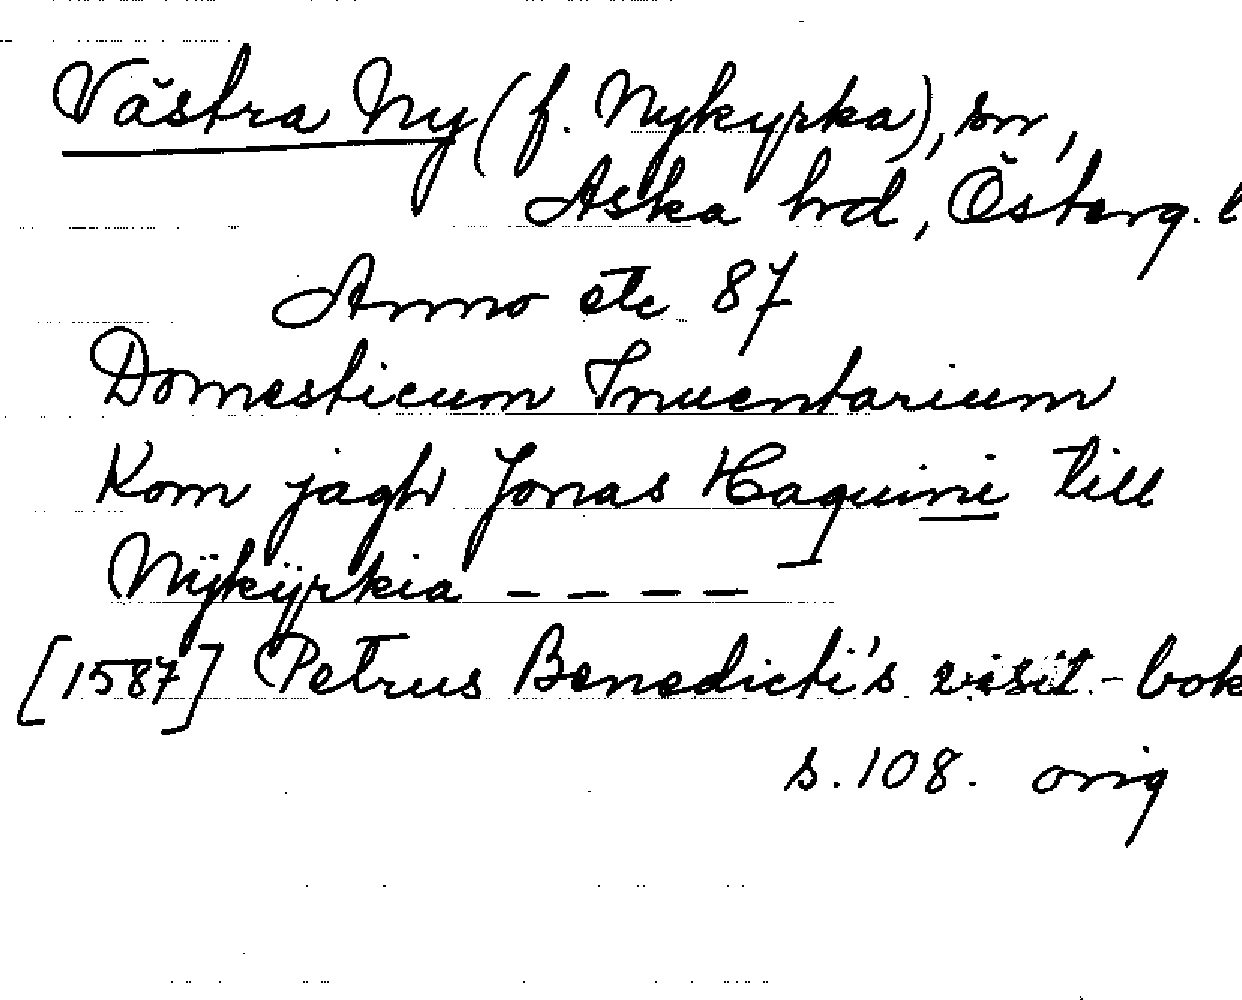 Västra Ny (f. Nykyrka), sn,
Aska hrd, Österg. l
Anno etc 87
Domesticum Inuentarium
Kom jagh Jonas Haquini till
Nÿkÿrkia ----
[1587] Petrus Benedicti's visit.-bok
s. 108. orig